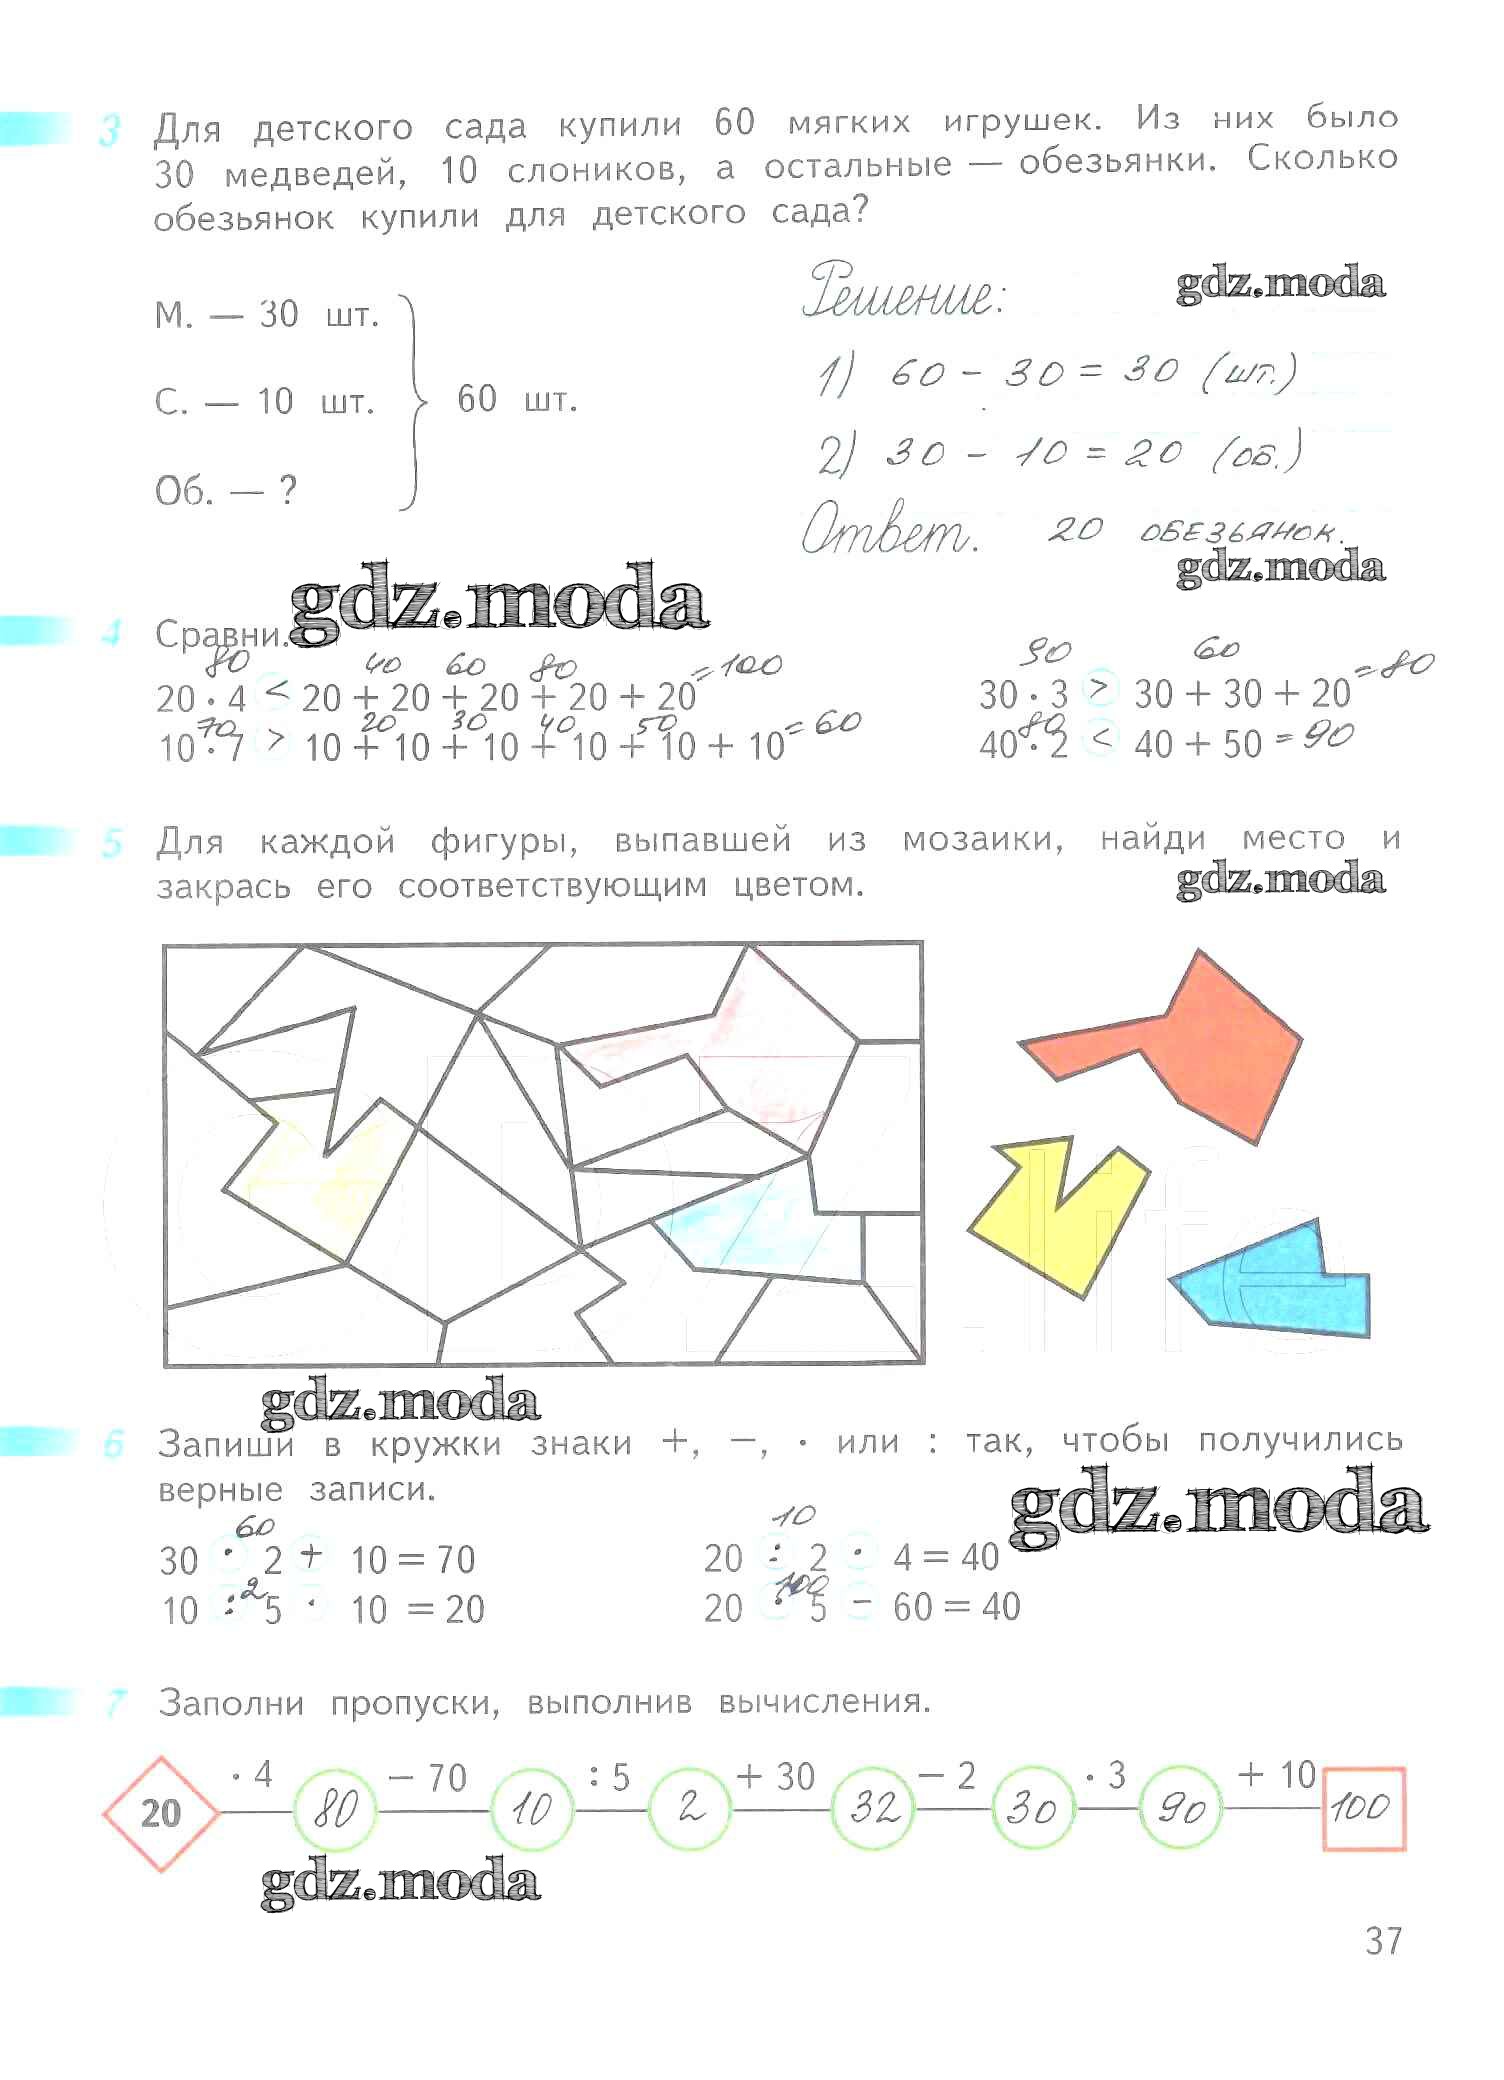 3 Для детского сада купили 60 мягких игрушек. Из них было
30 медведей, 10 слоников, а остальные — обезьянки. Сколько
обезьянок купили для детского сада?
Решение: gdz.moda
М. — 30 шт.
1) 60 - 30 = 30 (шт.)
С. — 10 шт. 60 шт.
2) 30 - 10 = 20 (об.)
Об. — ?
Ответ. 20 обезьянок.
gdz.moda gdz.moda
4 Сравни.
80 40 60 80 90 60
20 · 4 < 20 + 20 + 20 + 20 + 20 = 100 30 · 3 > 30 + 30 + 20 = 80
70 20 30 40 50 80
10 · 7 > 10 + 10 + 10 + 10 + 10 + 10 = 60 40 · 2 < 40 + 50 = 90
5 Для каждой фигуры, выпавшей из мозаики, найди место и
закрась его соответствующим цветом. gdz.moda
gdz.moda
6 Запиши в кружки знаки +, −, · или : так, чтобы получились
верные записи. gdz.moda
60 10
30 · 2 + 10 = 70 20 : 2 · 4 = 40
2 100
10 : 5 · 10 = 20 20 · 5 − 60 = 40
7 Заполни пропуски, выполнив вычисления.
· 4 − 70 : 5 + 30 − 2 · 3 + 10
20 80 10 2 32 30 90 100
gdz.moda
37